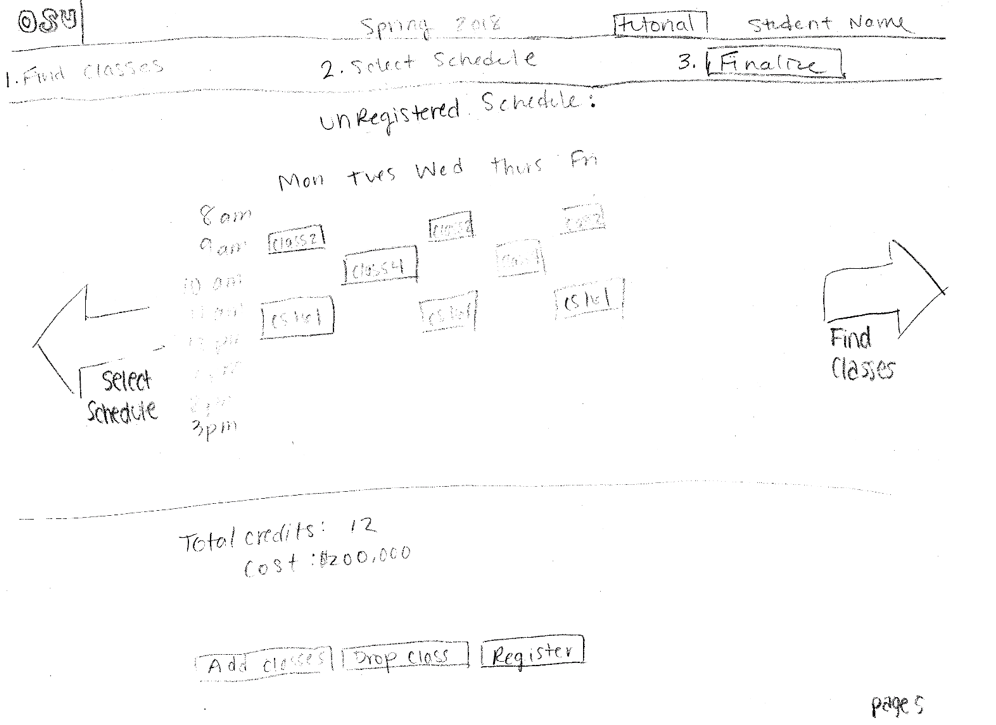 OSU Spring 2018 tutorial Student Name
1. Find Classes 2. Select Schedule 3. Finalize
unRegistered Schedule:
Mon Tues Wed Thurs Fri
8am
9am Class2 Class2
10 am Class4
CS161 CS161 CS161
Select
Schedule
3pm
Find
Classes
Total credits: 12
Cost: $200,000
Add classes Drop class Register
page 5